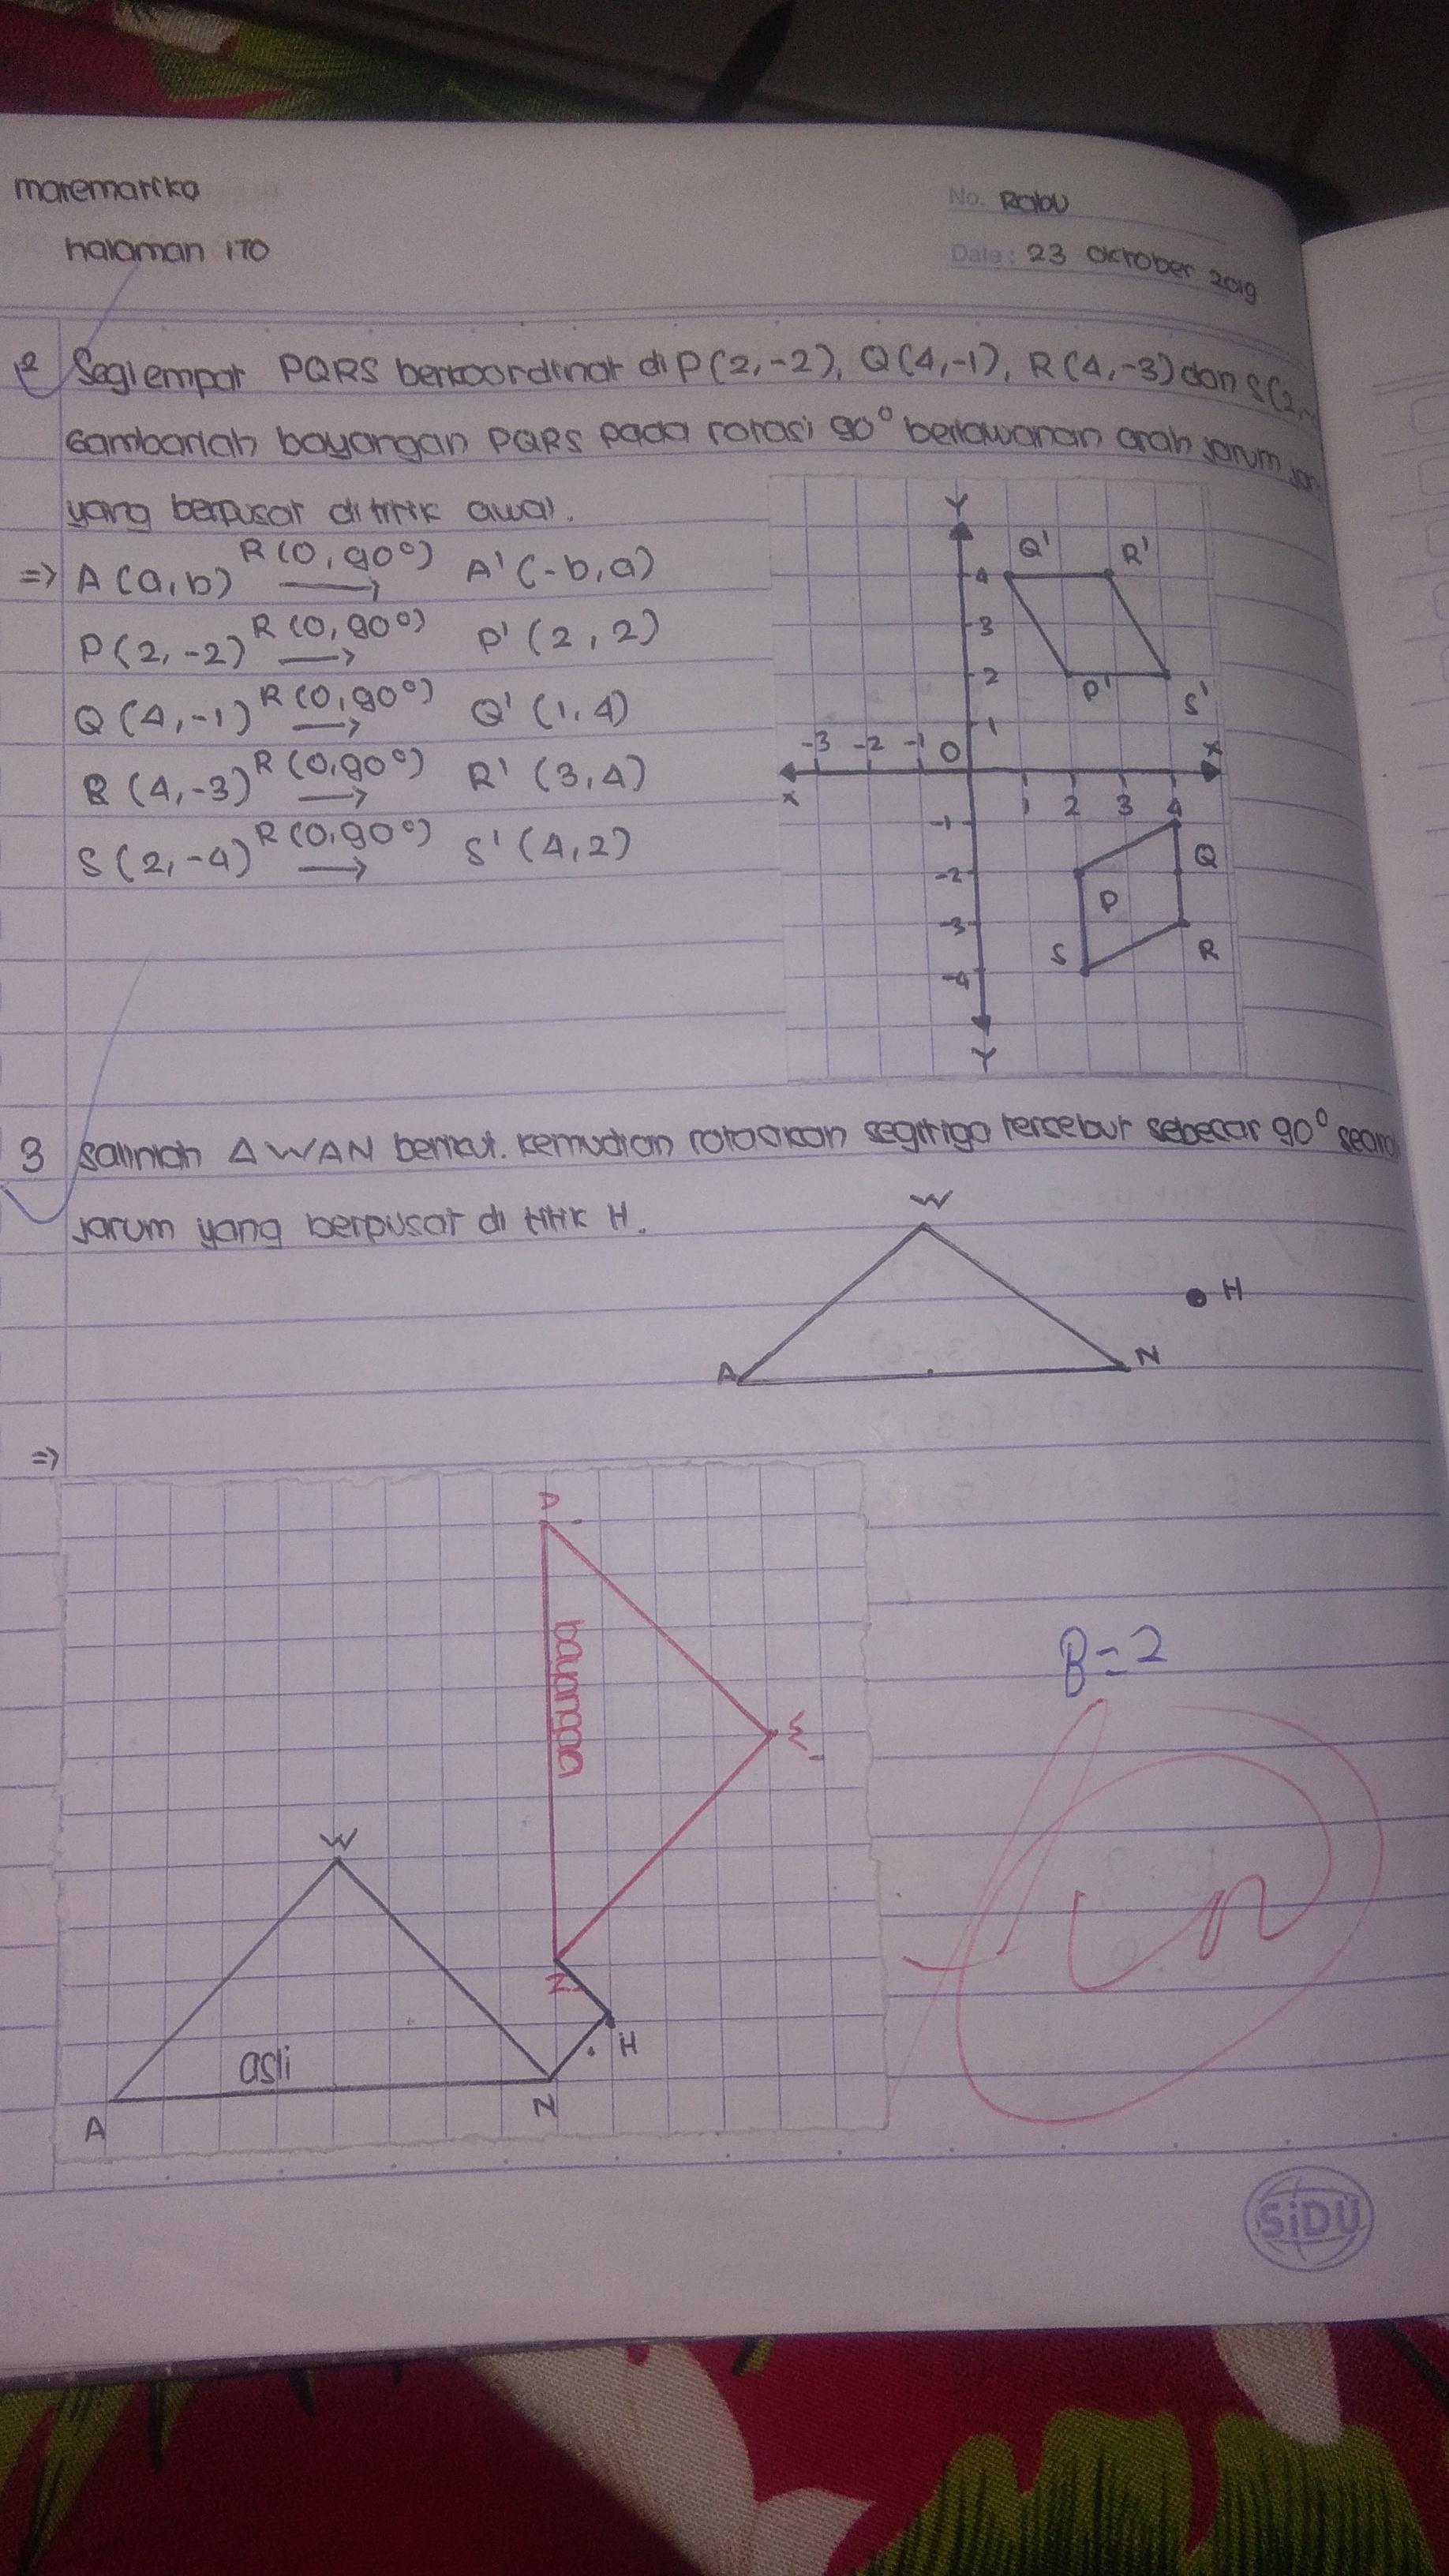 matematika
halaman 170
No. Rabu
Date: 23 Oktober 2019
2 Segiempat PQRS berkoordinat di P(2,-2), Q(4,-1), R(4,-3) dan S(2,
Gambarlah bayangan PQRS pada rotasi 90° berlawanan arah jarum
yang berpusat di titik awal.
=> A(a,b) R(0,90°) → A'(-b,a)
P(2,-2) R(0,90°) → P'(2,2)
Q(4,-1) R(0,90°) → Q'(1,4)
R(4,-3) R(0,90°) → R'(3,4)
S(2,-4) R(0,90°) → S'(4,2)
Y
Q' R'
4
3
2
P' S'
1
-3 -2 -1 0 X
X 1 2 3 4
-1
Q
-2
P
-3
S R
-4
Y
3 Salinlah ΔWAN berikut. Kemudian rotasikan segitiga tersebut sebesar 90° sear
jarum yang berpusat di titik H.
W
H
A N
=>
A'
bayangan
W'
B=2
W
N'
H
asli
A N
SiDU